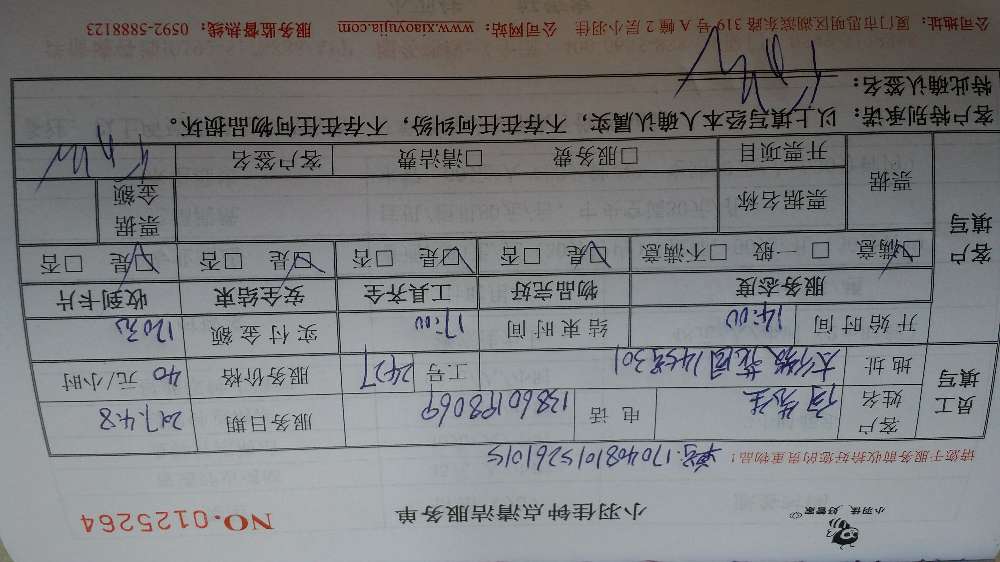 小羽佳 好管家
小羽佳钟点清洁服务单
NO.0125264
请您于服务前收拾好您的贵重物品！
单号:170408101526101S
员工填写
客户姓名 何先生 电话 13860198069 服务日期 2017.4.8
地址 花园 301 工号 2427 服务价格 40 元/小时
开始时间 14:00 结束时间 17:00 实付金额 120元
客户填写
服务态度 物品完好 工具齐全 安全结束 收到卡片
☑满意 □一般 □不满意 ☑是 □否 ☑是 □否 ☑是 □否 ☑是 □否
票据 票据名称 票据金额
开票项目 □服务费 □清洁费 客户签名
客户特别承诺：以上填写经本人确认属实，不存在任何纠纷，不存在任何物品损坏。
特此确认签名：
公司地址：厦门市思明区湖滨东路 319 号 A 幢 2 层小羽佳 公司网站：www.xiaoyujia.com 服务监督热线：0592-5888123